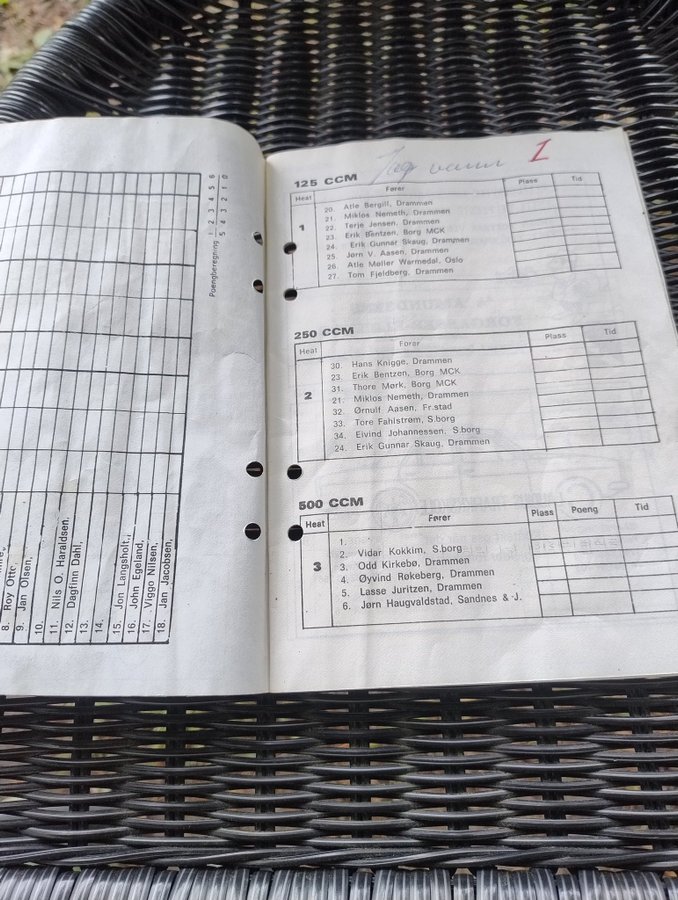 8. Roy Otto,
9. Jan Olsen,
10.
11. Nils O. Haraldsen,
12. Dagfinn Dahl,
13.
14.
15. Jon Langsholt,
16. John Egeland,
17. Viggo Nilsen,
18. Jan Jacobsen,
Poengberegning 1 2 3 4 5 6
5 4 3 2 1 0
Jag vann 1
125 CCM
Heat Fører Plass Tid
1
20. Atle Bergill, Drammen
21. Miklos Nemeth, Drammen
22. Terje Jensen, Drammen
23. Erik Bentzen, Borg MCK
24. Erik Gunnar Skaug, Drammen
25. Jørn V. Aasen, Drammen
26. Atle Møller Warmedal, Oslo
27. Tom Fjeldberg, Drammen
250 CCM
Heat Fører Plass Tid
2
30. Hans Knigge, Drammen
23. Erik Bentzen, Borg MCK
31. Thore Mørk, Borg MCK
21. Miklos Nemeth, Drammen
32. Ørnulf Aasen, Fr.stad
33. Tore Fahlstrøm, S.borg
34. Eivind Johannessen, S.borg
24. Erik Gunnar Skaug, Drammen
500 CCM
Heat Fører Plass Poeng Tid
3
1.
2. Vidar Kokkim, S.borg
3. Odd Kirkebø, Drammen
4. Øyvind Røkeberg, Drammen
5. Lasse Juritzen, Drammen
6. Jørn Haugvaldstad, Sandnes & J.